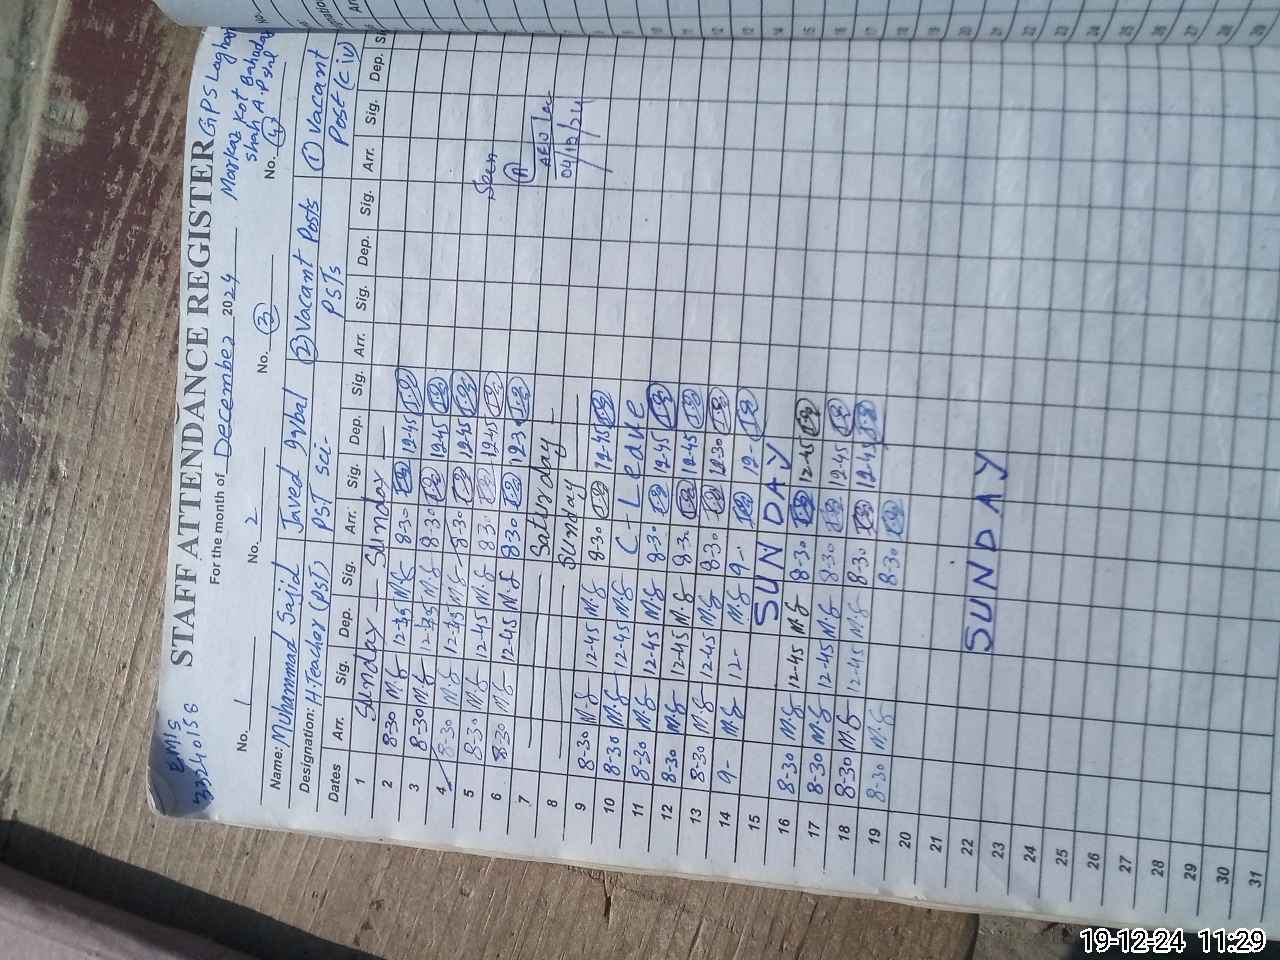 EMIS
33240158
STAFF ATTENDANCE REGISTER GPS Laghar
For the month of December 2024 Markaz Kot Bahadar
Shah A.P Sial
No. 1 No. 2 No. 3 No. 4
Name: Muhammad Sajid Javed Iqbal (2) Vacant Posts (1) Vacant
Designation: H.Teacher (PST) PST Sci- PSTs Post (C iv)
Dates Arr. Sig. Dep. Sig. Arr. Sig. Dep. Sig. Arr. Sig. Dep. Sig. Arr. Sig. Dep.
1 Sunday — Sunday —
2 8-30 M.S 12-45 M.S 8-30 12-45
3 8-30 M.S 12-45 M.S 8-30 12-45
4 8-30 M.S 12-45 M.S 8-30 12-45
5 8-30 M.S 12-45 M.S 8-30 12-45
6 8-30 M.S 12-45 M.S 8-30 12-3
7 Saturday
8 Sunday
9 8-30 M.S 12-45 M.S 8-30 12-45
10 8-30 M.S 12-45 M.S C-Leave
11 8-30 M.S 12-45 M.S 8-30 12-45
12 8-30 M.S 12-45 M.S 8-30 12-45
13 8-30 M.S 12-45 M.S 8-30 12-30
14 9- M.S 12- M.S 9- 12-
15 SUNDAY
16 8-30 M.S 12-45 M.S 8-30 12-45
17 8-30 M.S 12-45 M.S 8-30 12-45
18 8-30 M.S 12-45 M.S 8-30 12-45
19 8-30 M.S 8-30
20
21
22 SUNDAY
23
24
25
26
27
28
29
30
31
Seen
AEO
04/12/24
19-12-24 11:29